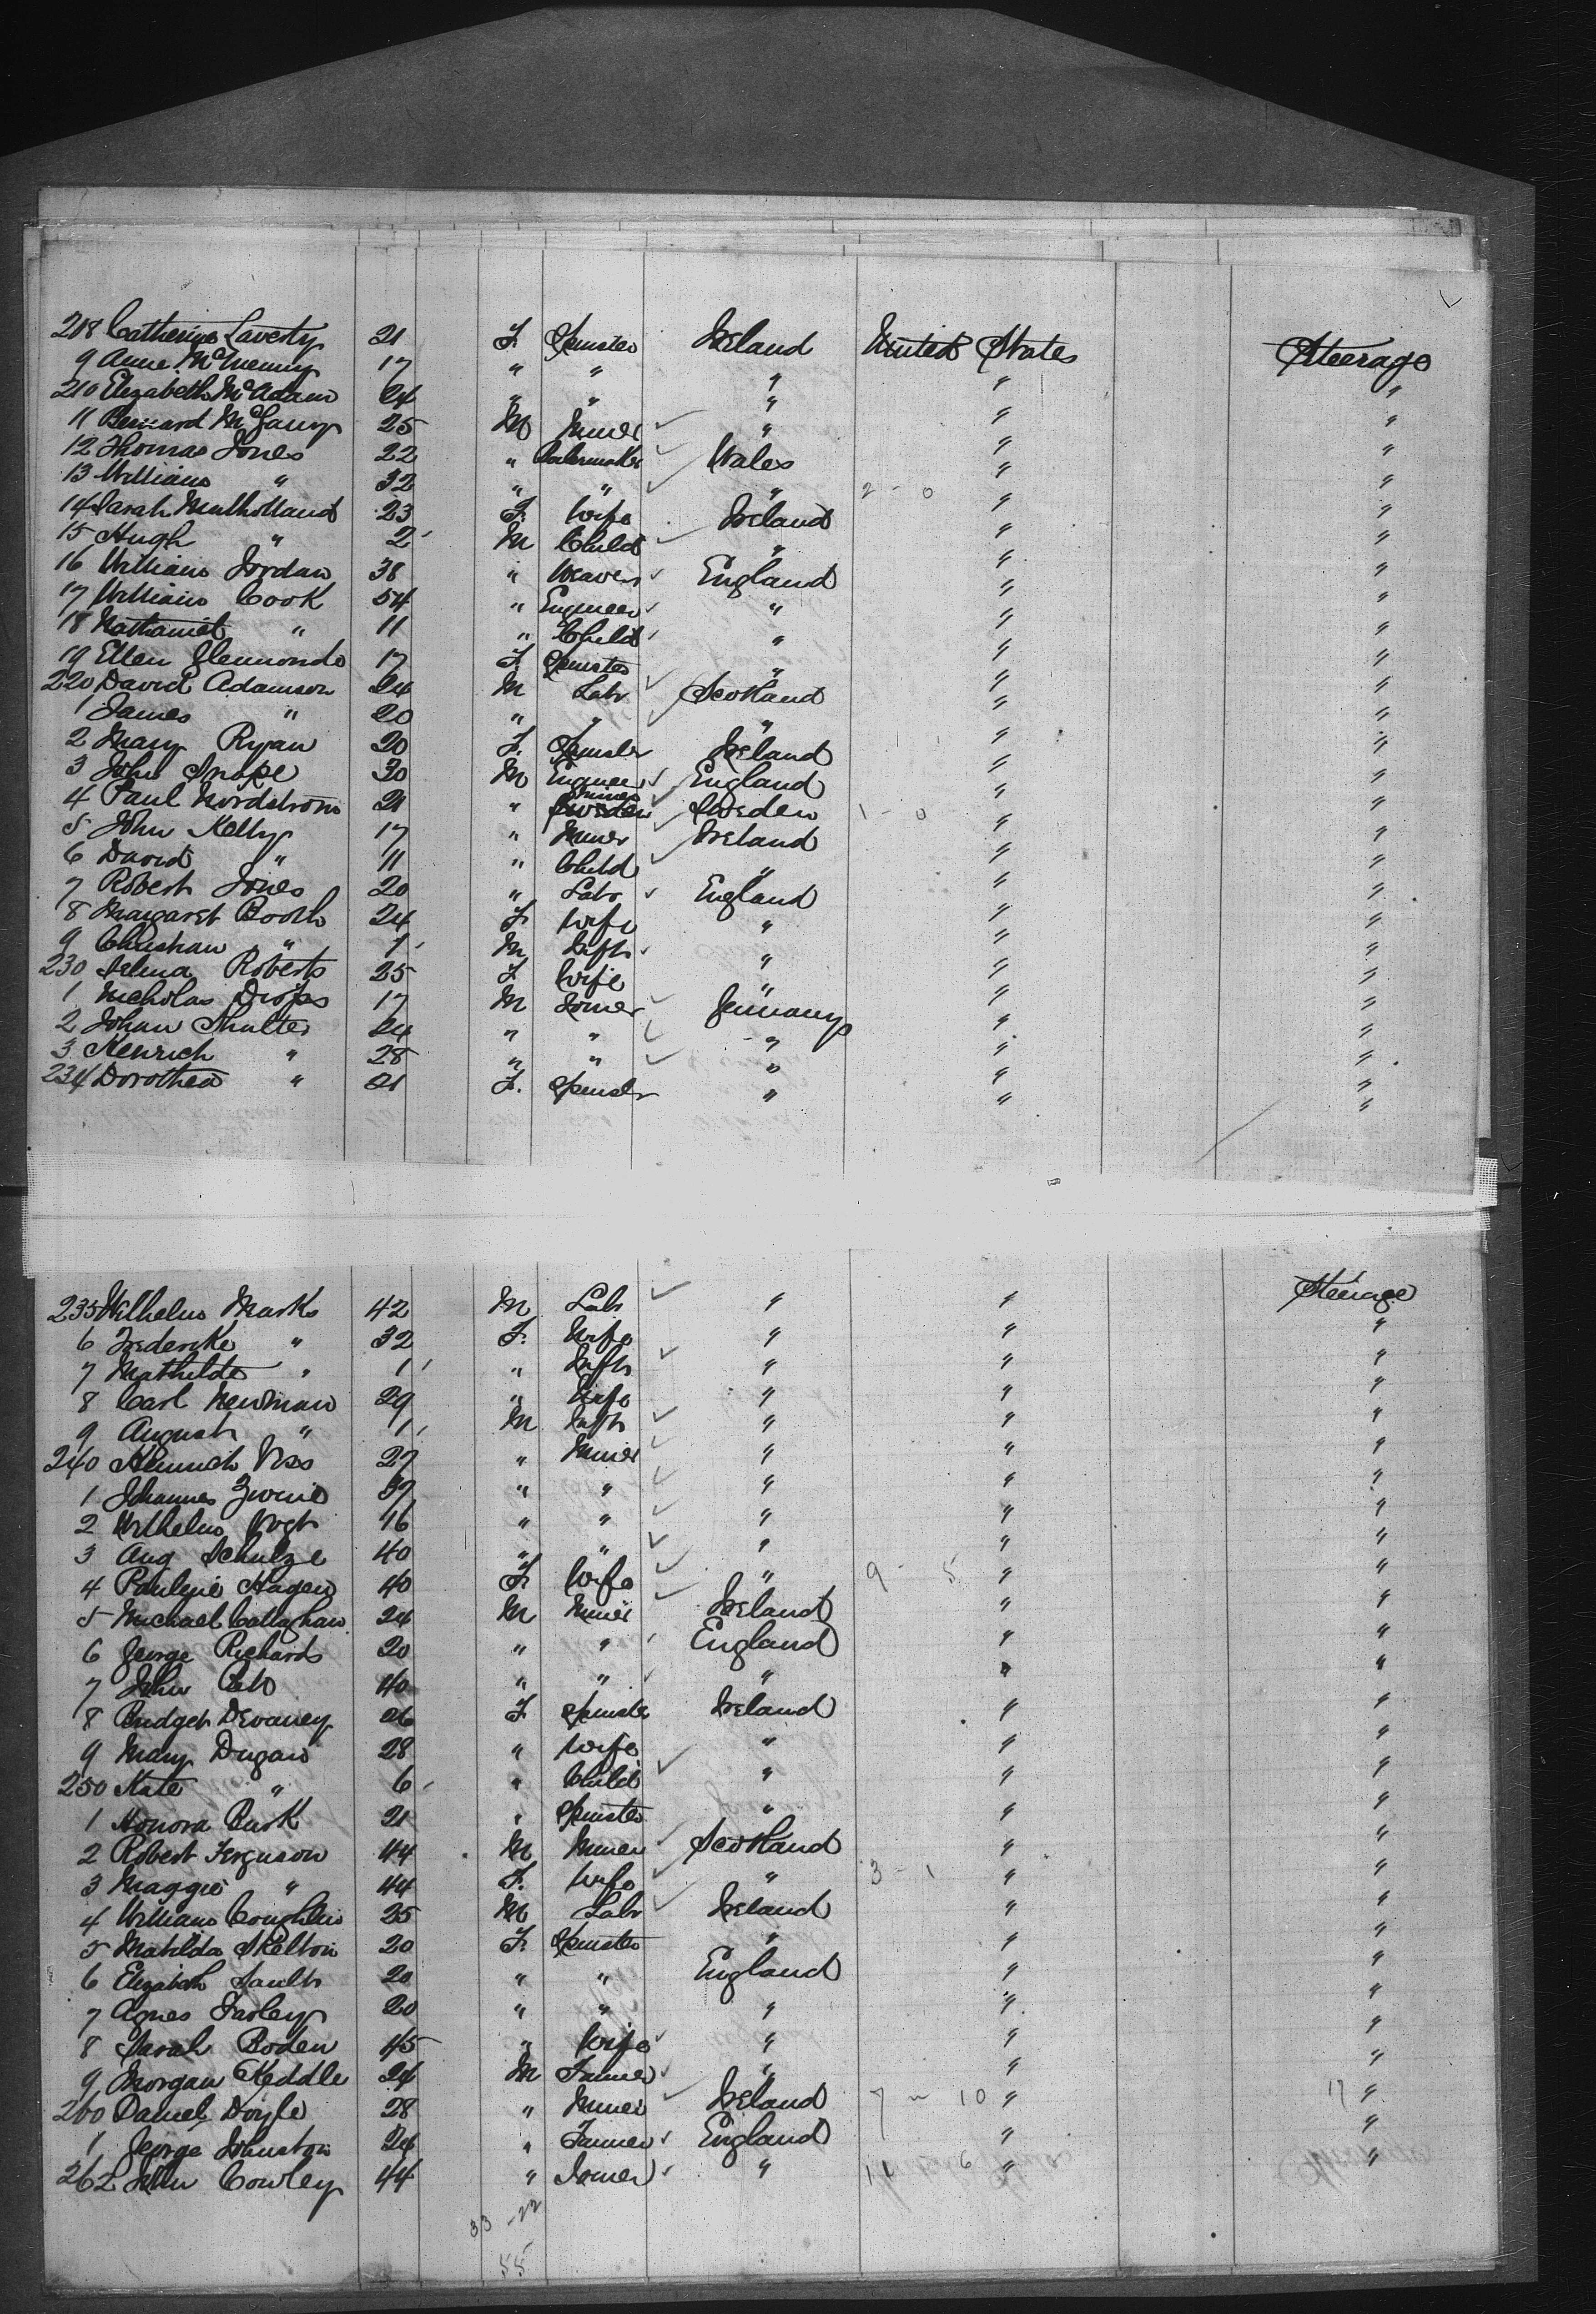 208 Catherine Laverty 21 F. Spinster Ireland United States Steerage
9 Anne McInerny 17 " " " " "
210 Elizabeth McAdam 24 " " " " "
11 Bernard McGarry 25 M Miner " " "
12 Thomas Jones 22 " Boilermaker Wales " "
13 William " 32 " " " 2 - 0 " "
14 Sarah Mulholland 23 F. Wife Ireland " "
15 Hugh " 2 M Child " " "
16 William Jordan 38 " Weaver England " "
17 William Cook 54 " Engineer " " "
18 Nathaniel " 11 " Child " " "
19 Ellen 17 F. Spinster " " "
220 David Adamson 24 M Labr Scotland " "
1 James " 20 " " " " "
2 Mary Ryan 20 F. Spinster Ireland " "
3 John Snape 30 M Engineer England " "
4 Paul Nordstrom 21 " Miner Sweden 1 - 0 " "
5 John Kelly 17 " Miner Ireland " "
6 David " 11 " Child " " "
7 Robert Jones 20 " Labr England " "
8 Margaret Booth 24 F. Wife " " "
9 Christian " 1 M Inft " " "
230 Selina Roberts 25 F Wife " " "
1 Nicholas Drops 17 M Joiner Germany " "
2 Johan Shulter 24 " " " " "
3 Henrich " 28 " " " " "
234 Dorothea " 21 F. Spinster " " "
235 Wilhelm Marks 42 M Labr " " Steerage
6 Frederike " 32 F. Wife " " "
7 Mathilde " 1 " Inft " " "
8 Carl Newman 29 " Wife " " "
9 August " 1 M Inft " " "
240 Heinrich Voss 27 " Miner " " "
1 Johannes 37 " " " " "
2 Wilhelm Vogt 16 " " " " "
3 Aug Schulze 40 " " " " "
4 Pauline Hagen 40 F. Wife " 9 - 5 " "
5 Michael Callaghan 24 M Miner Ireland " "
6 George Richards 20 " " England " "
7 John 40 " " " " "
8 Bridget Devaney 26 F Spinster Ireland " "
9 Mary Dugan 28 " Wife " " "
250 Kate " 6 " Child " " "
1 Honora Burk 21 " Spinster " " "
2 Robert Ferguson 44 M Miner Scotland " "
3 Maggie " 44 F. Wife " 3 - 1 " "
4 William Coughlin 25 M Labr Ireland " "
5 Matilda Skelton 20 F. Spinster " " "
6 Elizabeth Sault 20 " " England " "
7 Agnes Farley 20 " " " " "
8 Sarah Boden 45 " Wife " " "
9 Morgan Keddle 24 M Farmer " " "
260 Daniel Doyle 28 " Miner Ireland 7 - 10 " 17 "
1 George Johnston 24 " Farmer England " "
262 John Cowley 44 " Joiner " 11 6 " "
33 - 22
55